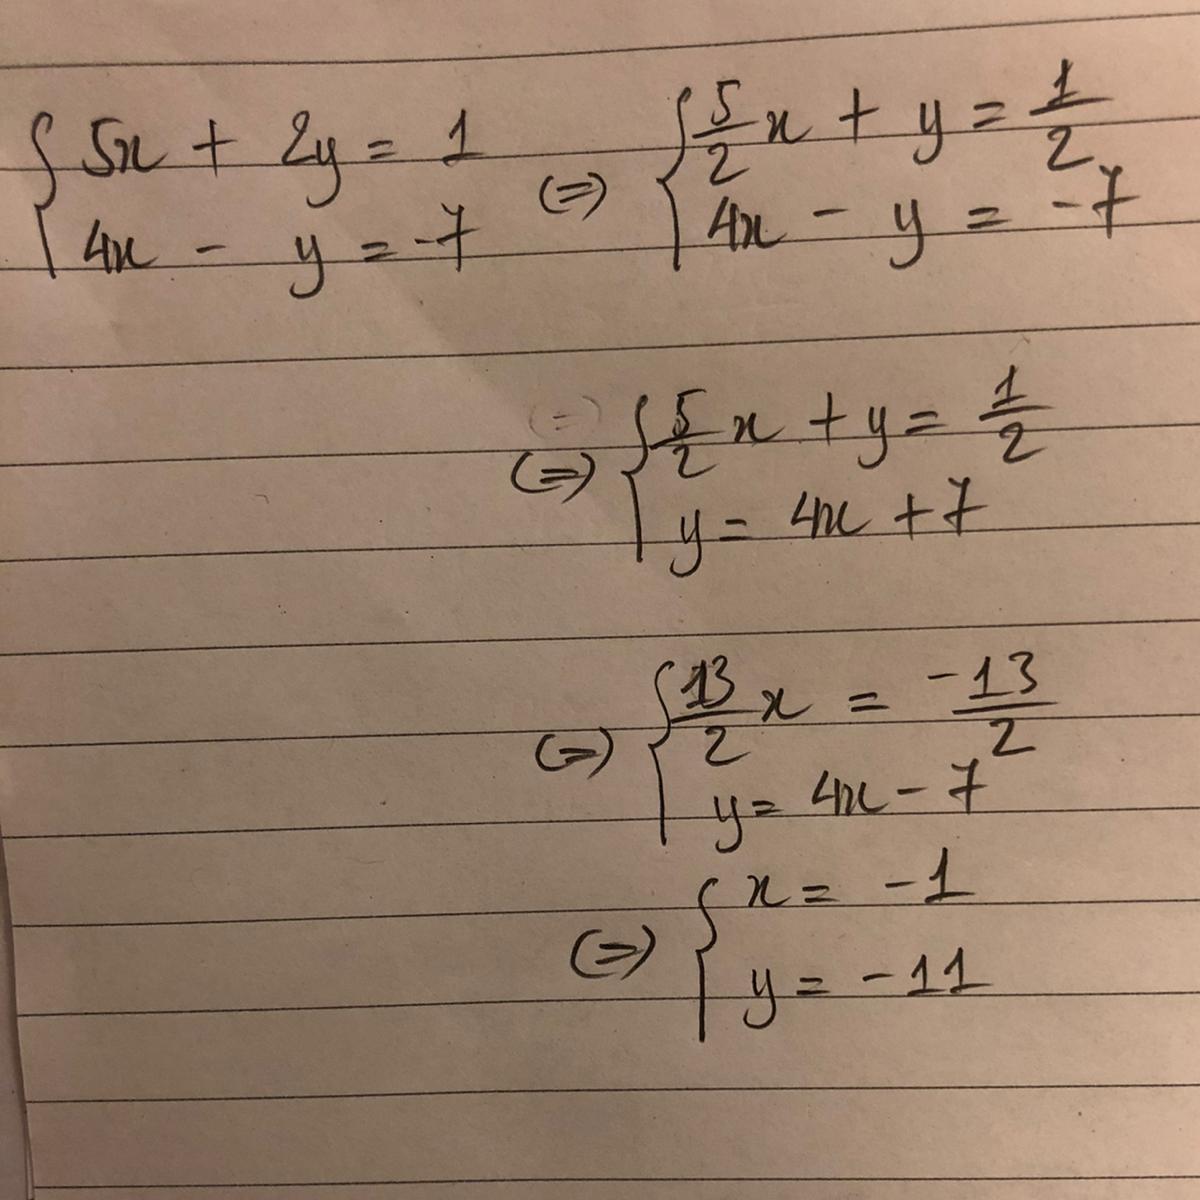 { 5x + 2y = 1
4x - y = -7
(=) { 5/2 x + y = 1/2
4x - y = -7
(=) { 5/2 x + y = 1/2
y = 4x + 7
(=) { 13/2 x = -13/2
y = 4x - 7
(=) { x = -1
y = -11